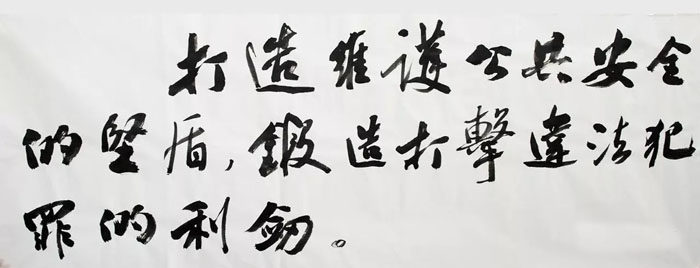 打造維護公共安全
的堅盾，鍛造打擊違法犯
罪的利劒。